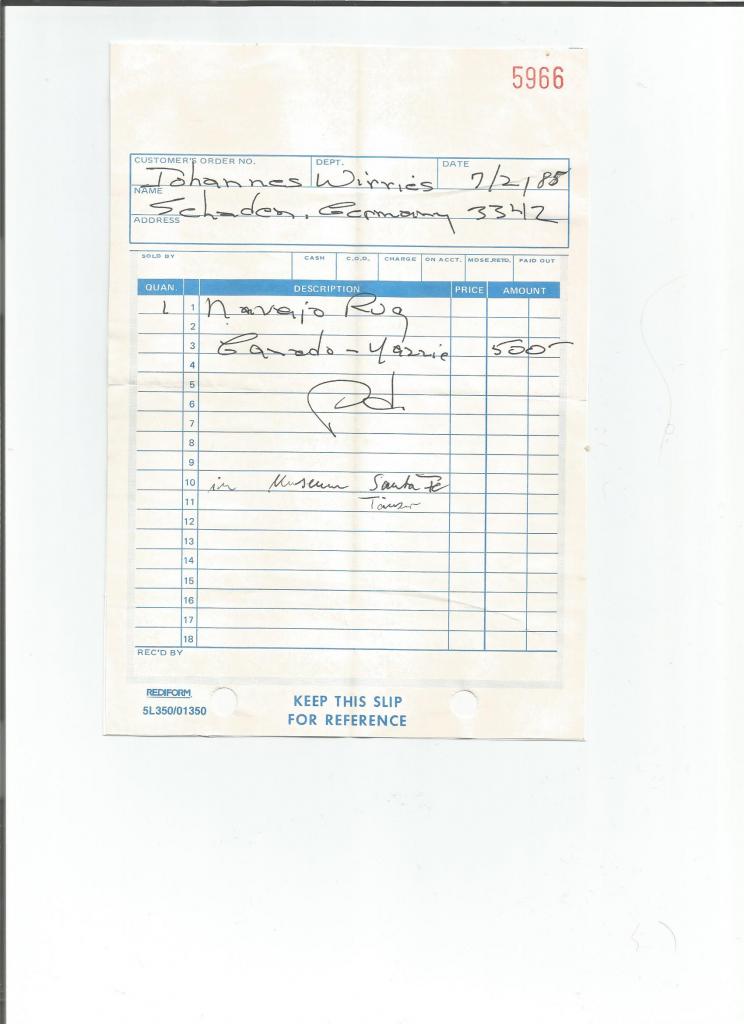 5966
CUSTOMER'S ORDER NO. DEPT. DATE
Johannes Wirries 7/2/85
NAME
Schaden, Germany 3342
ADDRESS
SOLD BY CASH C.O.D. CHARGE ON ACCT. MDSE.RETD. PAID OUT
QUAN. DESCRIPTION PRICE AMOUNT
1 1 Navajo Rug
2
3 Ganado - Yazzie 500-
4
5
6 Pd.
7
8
9
10 in Museum Santa Fe
11
12
13
14
15
16
17
18
REC'D BY
REDIFORM
5L350/01350
KEEP THIS SLIP
FOR REFERENCE